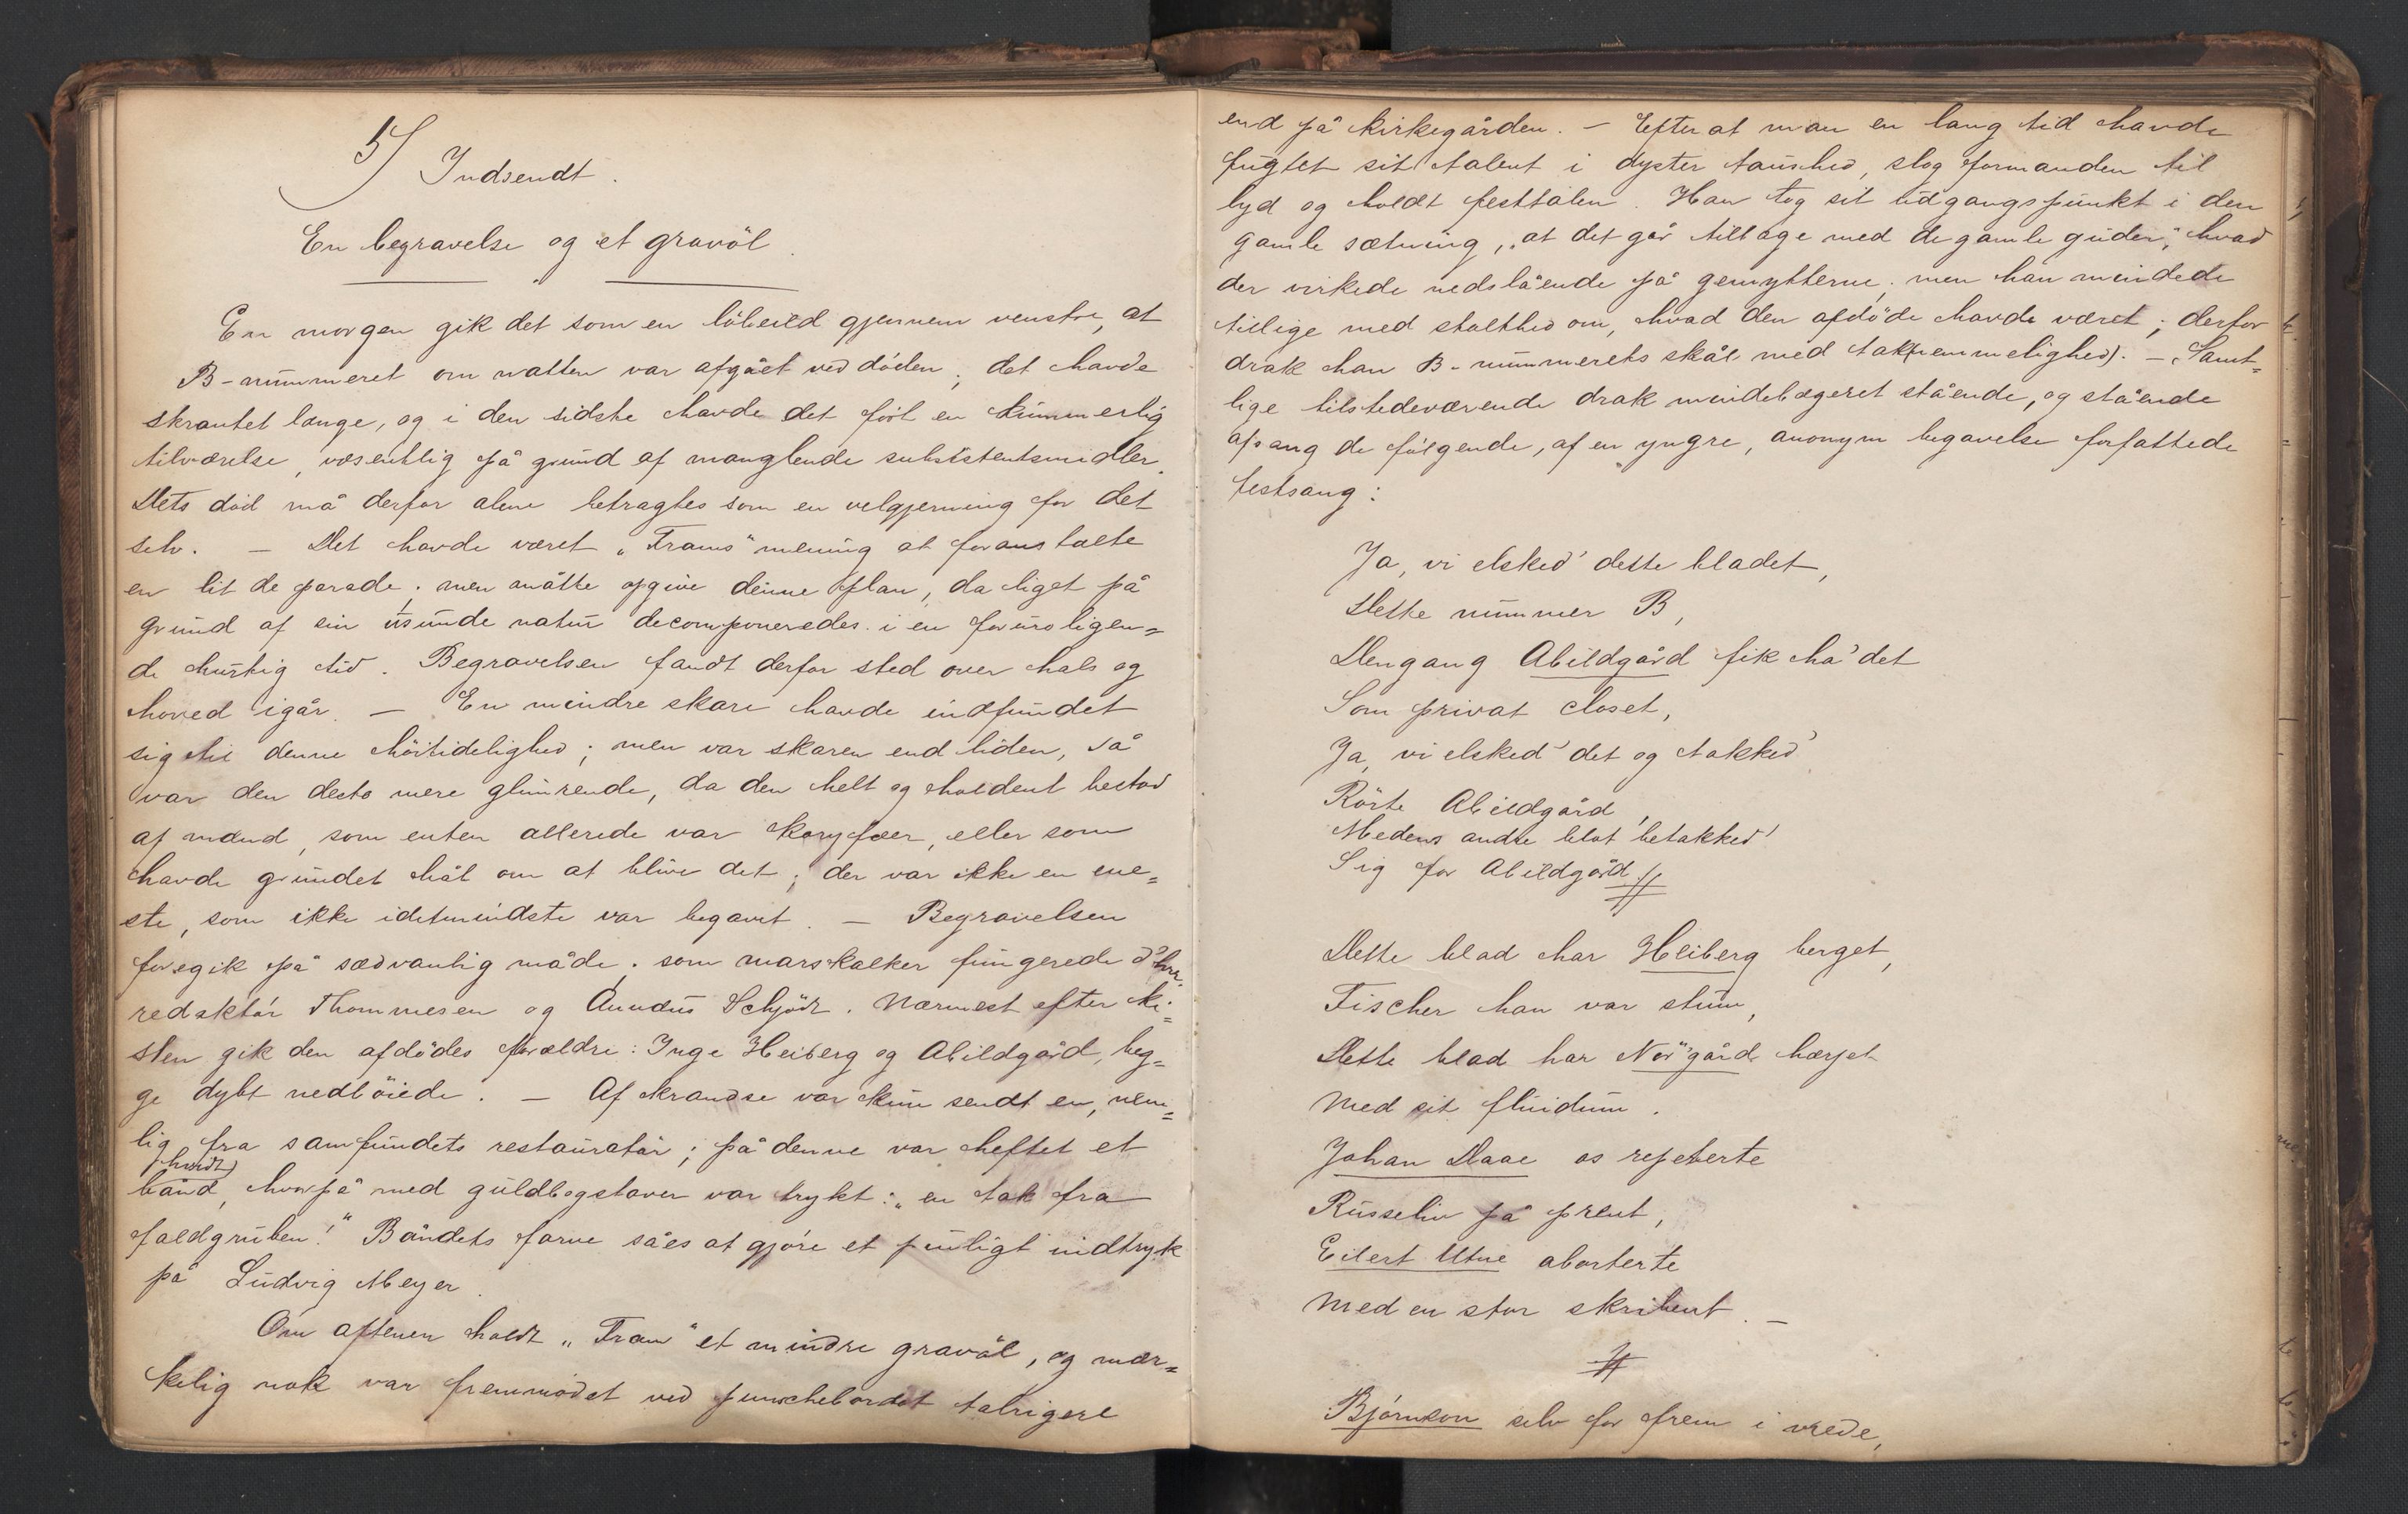 5/ Indsendt.
En begravelse og et gravöl.
En morgen gik det som en löbeild gjennem venstre, at
B-nummeret om natten var afgået ved döden; det havde
skrantet længe, og i den sidste havde det fört en kummerlig
tilværelse, væsentlig på grund af manglende subsistentsmidler.
Dets död må derfor alene betragtes som en velgjerning for det
selv. – Det havde været „Frams" mening at foranstalte
en lit de parade; men måtte opgive denne plan, da liget på
grund af sin usunde natur decomponeredes i en foruroligen=
de hurtig tid. Begravelsen fandt derfor sted over hals og
hoved igår. – En mindre skare havde indfundet
sig til denne höitidelighed; men var skaren end liden, så
var den desto mere glimrende, da den helt og holdent bestod
af mænd, som enten allerede var koryfæer, eller som
havde grundet håb om at blive det; der var ikke en ene=
ste, som ikke idetmindste var begavet. – Begravelsen
foregik på sædvanlig måde; som marskalker fungerede d'hrr.
redaktör Thommesen og Anndus Schjödt. Nærmest efter ki=
sten gik den afdödes forældre: Inge Heiberg og Abildgård, beg=
ge dybt nedböiede. – Af krandse var kun sendt en, nem=
lig fra samfundets restauratör; på denne var heftet et
hvidt
bånd, hvorpå med guldbogstaver var trykt: „en tak fra
faldgruben!" Båndets farve såes at gjöre et pinligt indtryk
på Ludvig Meyer.
Om aftenen holdt „Fram" et mindre gravöl, og mær=
kelig nok var fremmödet ved punschebordet talrigere
end på kirkegården. – Efter at man en lang tid havde
fugtet sit talent i dyster taushed, slog formanden til
lyd og holdt festtalen. Han tog sit udgangspunkt i den
gamle sætning, „at det går tilbage med de gamle guder", hvad
der virkede nedslående på gemytterne; men han mindede
tillige med stolthed om, hvad den afdöde havde været; derfor
drak han B-nummerets skål med tak(nemmelighed). – Samt=
lige tilstedeværende drak mindebægeret stående, og stående
afsang de fölgende, af en yngre, anonym begavelse forfattede
festsang:
Ja, vi elsked' dette bladet,
Dette nummer B,
Dengang Abildgård fik ha' det
Som privat closet,
Ja, vi elsked' det og takked'
Rörte Abildgård,
Medens andre blot betakked'
Sig for Abildgård.
Dette blad har Heiberg berget,
Fischer han var stum,
Dette blad har Nörgård hærjet
Med sit fluidum.
Johan Daae os repeterte
Russeliv på prent,
Eilert Utne aborterte
Med en stor skribent. –
Björnson selv for frem i vrede,